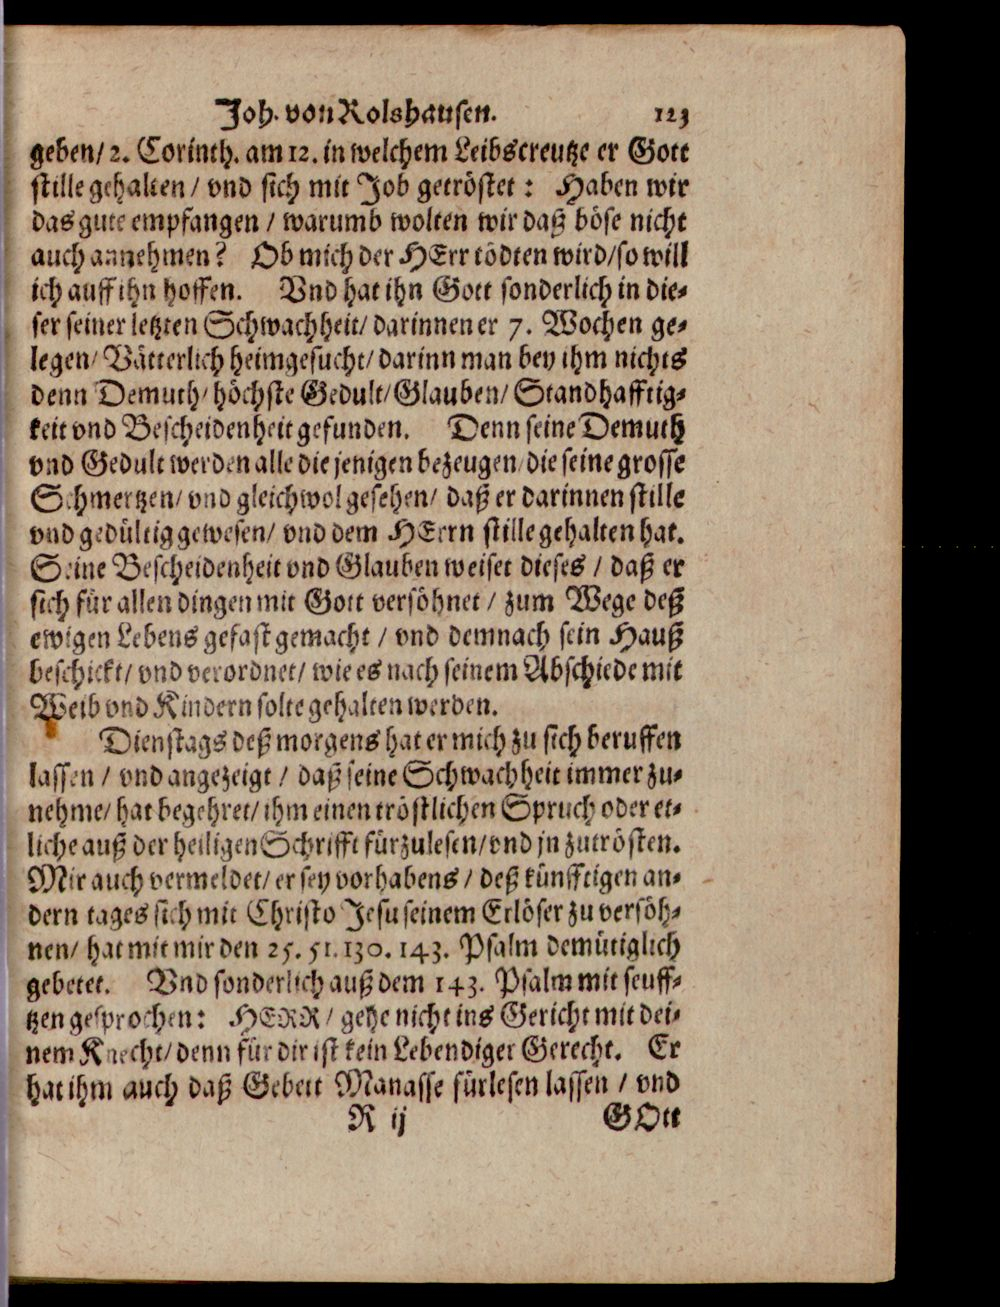 Joh. von Rolshausen. 123
geben/ 2. Corinth. am 12. in welchem Leibscreutze er Gott
stille gehalten / vnd sich mit Job getröstet : Haben wir
das gute empfangen / warumb wolten wir daß böse nicht
auch annehmen? Ob mich der HErr tödten wird/ so will
ich auff ihn hoffen. Vnd hat ihn Gott sonderlich in die-
ser seiner letzten Schwachheit/ darinnen er 7. Wochen ge-
legen/ Vätterlich heimgesucht/ darinn man bey ihm nichts
denn Demuth/ höchste Gedult/ Glauben/ Standhafftig-
keit vnd Bescheidenheit gefunden. Denn seine Demuth
vnd Gedult werden alle die jenigen bezeugen/ die seine grosse
Schmertzen/ vnd gleichwol gesehen/ daß er darinnen stille
vnd gedültig gewesen/ vnd dem HErrn stille gehalten hat.
Seine Bescheidenheit vnd Glauben weiset dieses / daß er
sich für allen dingen mit Gott versöhnet / zum Wege deß
ewigen Lebens gefast gemacht / vnd demnach sein Hauß
beschickt/ vnd verordnet/ wie es nach seinem Abschiede mit
Weib vnd Kindern solte gehalten werden.
Dienstags deß morgens hat er mich zu sich beruffen
lassen / vnd angezeigt / daß seine Schwachheit immer zu-
nehme/ hat begehret/ ihm einen tröstlichen Spruch oder et-
liche auß der heiligen Schrifft fürzulesen/ vnd jn zutrösten.
Mir auch vermeldet/ er sey vorhabens / deß künfftigen an-
dern tages sich mit Christo Jesu seinem Erlöser zu versöh-
nen/ hat mit mir den 25. 51. 130. 143. Psalm demütiglich
gebetet. Vnd sonderlich auß dem 143. Psalm mit seuff-
tzen gesprochen: HERR / gehe nicht ins Gericht mit dei-
nem Knecht/ denn für dir ist kein Lebendiger Gerecht. Er
hat ihm auch daß Gebett Manasse fürlesen lassen / vnd
R ij GOtt